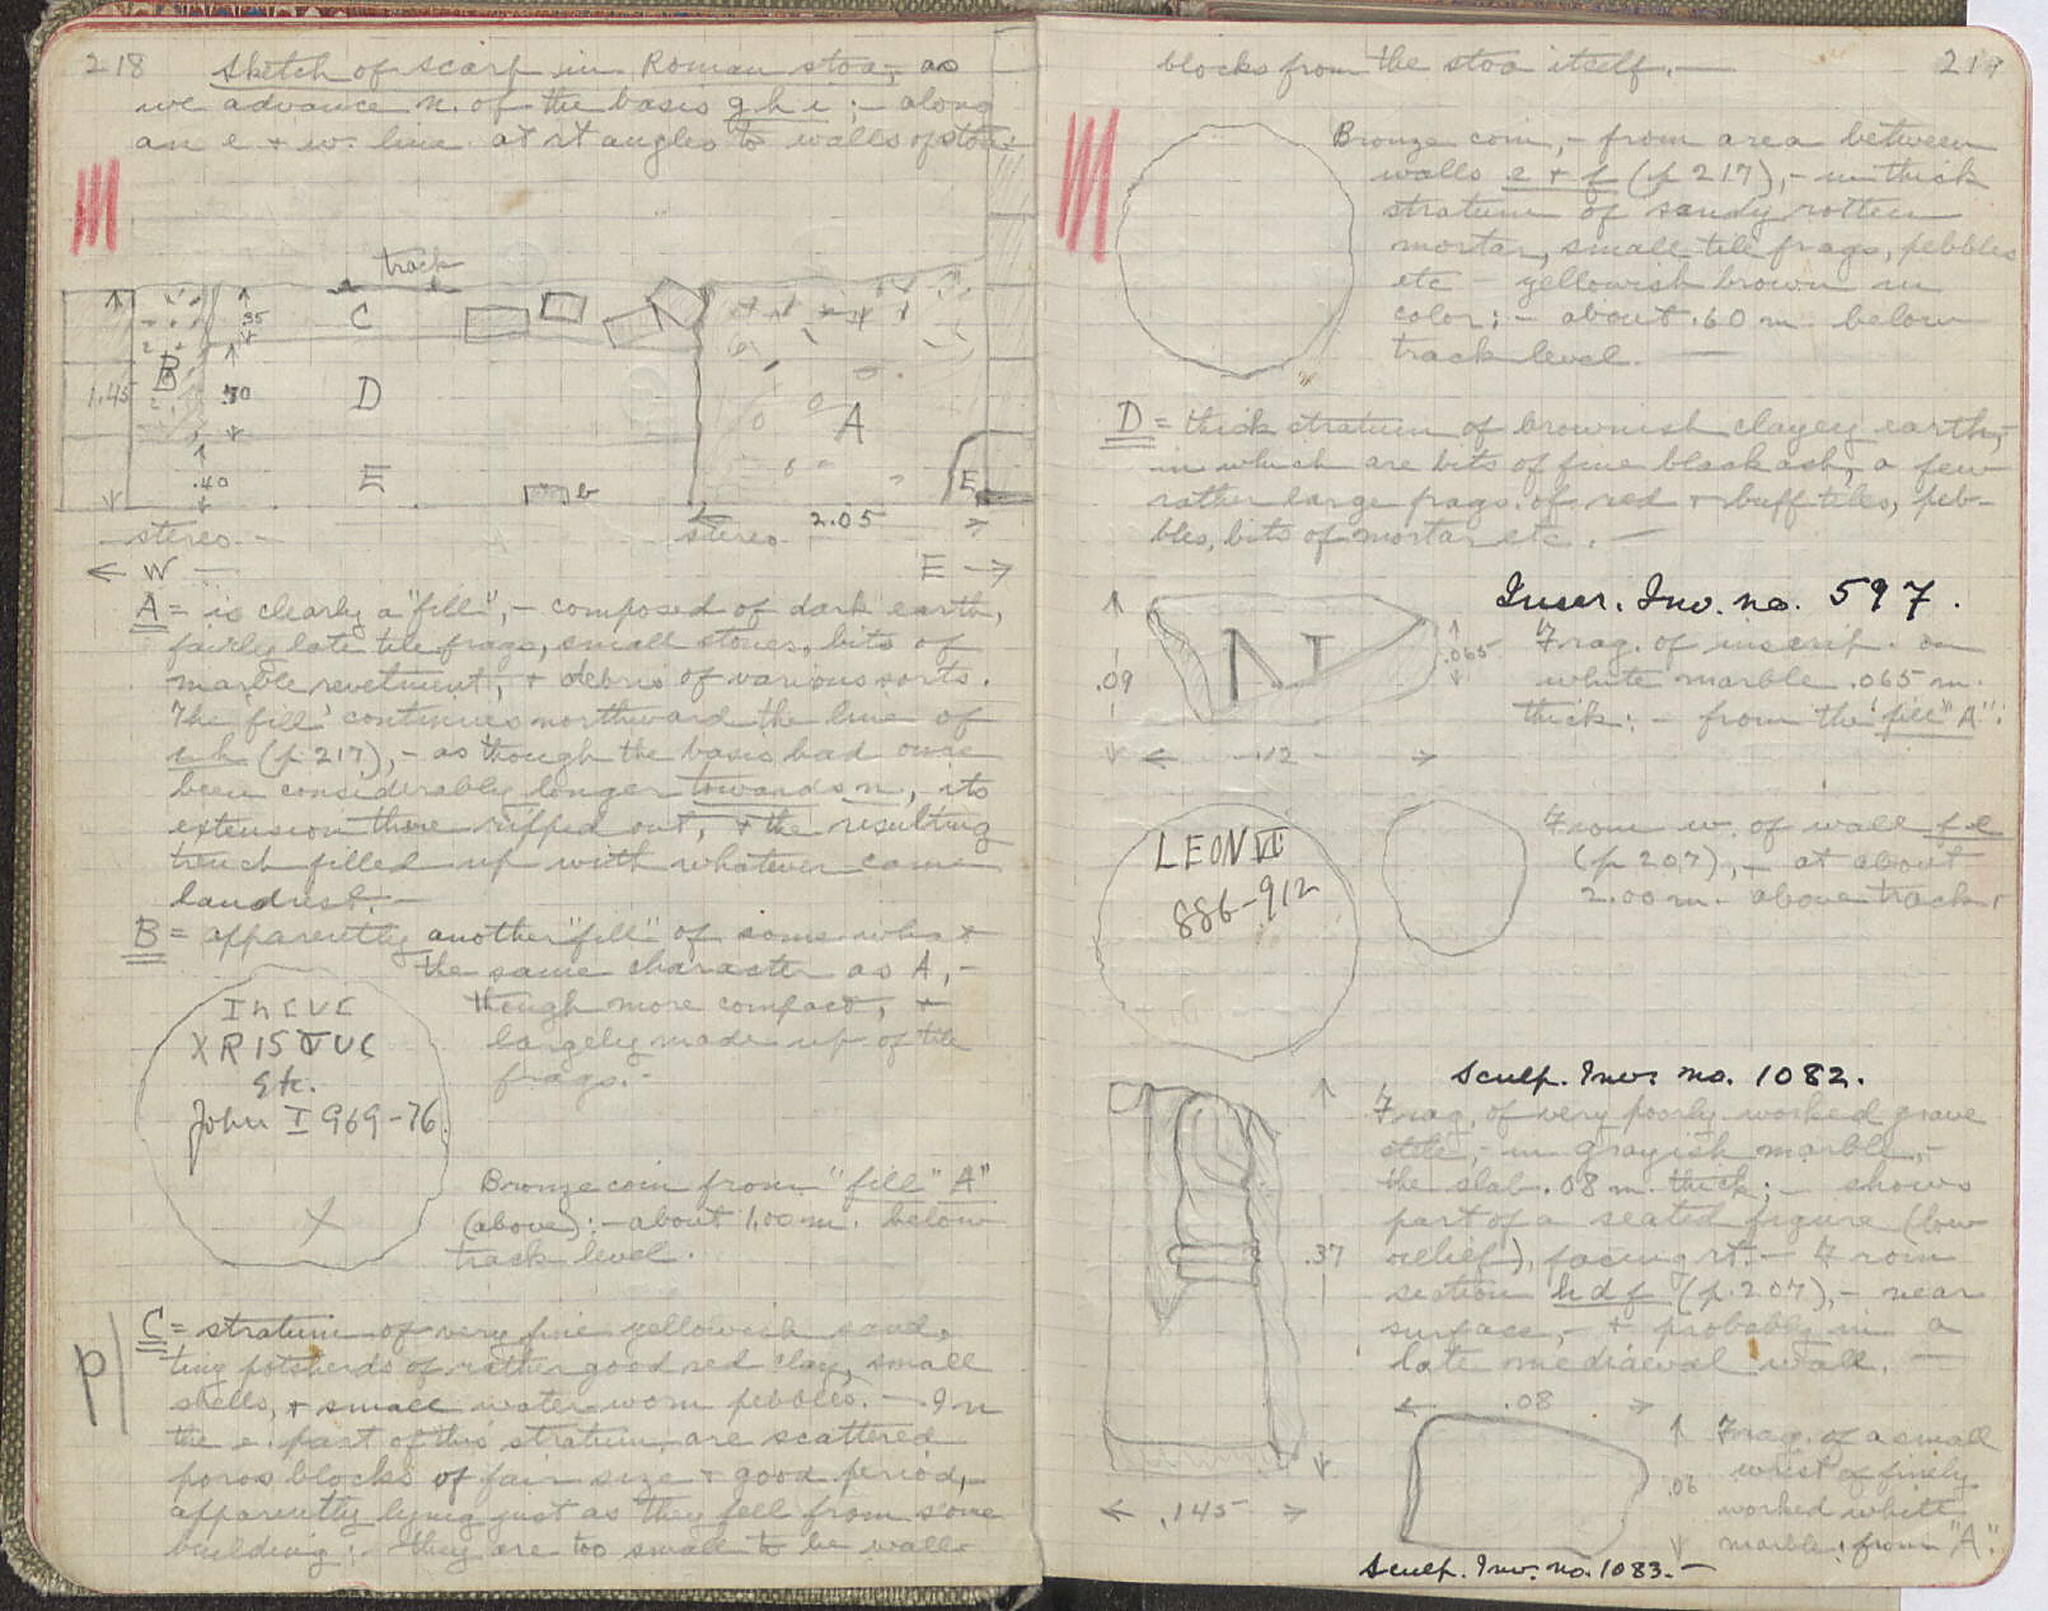 218
Sketch of scarf in Roman stoa, as
we advance n. of the basis g h i :- along
an e + w. line at rt angles to walls of stoa:
track
C
.35
B
1.45
.70
D
A
E
.40
b
E
stereo -
stereo
2.05
← W —
E →
A = is clearly a "fill", - composed of dark earth,
fairly late tile frags, small stones, bits of
marble revetment, + debris of various sorts.
The 'fill' continues northward the line of
(p 217), - as though the basis had once
been considerably longer towards n, its
extension there ripped out, + the resulting
trench filled up with whatever came
handiest. -
B = apparently another "fill" of somewhat
the same character as A, -
though more compact, +
largely made up of tile
frags. -
IhCUC
XRISTUC
Etc.
John I 969-76.
Bronze coin from "fill" A"
(above) :- about 1.00 m. below
track level.
C = stratum of very fine yellowish sand,
tiny potsherds of rather good red clay, small
shells, + small water-worn pebbles. - In
p|
the e. part of this stratum, are scattered
poros blocks of fair size + good period, -
apparently lying just as they fell from some
building :- they are too small to be wall-
blocks from the stoa itself. —
219
Bronze coin, - from area between
walls e + f (p 217), - in thick
stratum of sandy rotten
mortar, small tile frags, pebbles
etc - yellowish brown in
color ; - about .60 m below
track level. —
D = thick stratum of brownish clayey earth, -
in which are bits of fine black ash, a few
rather large frags. of red + buff tiles, peb-
bles, bits of mortar etc. —
Inscr. Inv. no. 597.
N
.09
.065
.112
Frag. of inscrip. on
white marble .065 m.
thick : - from the "fill" "A".
LEON VI
886-912
From w. of wall f-e
(p 207), - at about
2.00 m. above track.
Sculp. Inv. no. 1082.
Frag. of very poorly worked grave
stele, - in grayish marble, -
the slab .08 m. thick ; - shows
part of a seated figure (low
relief), facing rt. - From
section h d f (p. 207), - near
surface, - + probably in a
late mediaeval wall. —
.37
.145
.08
.06
Frag. of a small
wrist of finely
worked white
marble : from "A".
Sculp. Inv. no. 1083. -